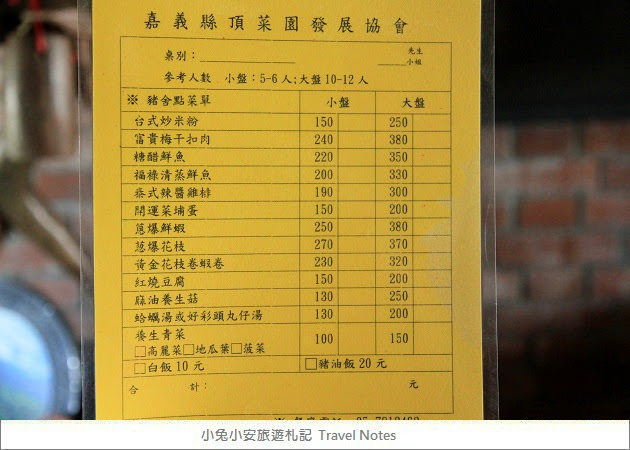 嘉義縣頂菜園發展協會
桌別：
先生
小姐
參考人數 小盤：5-6人;大盤10-12人
※ 豬舍點菜單 小盤 大盤
台式炒米粉 150 250
富貴梅干扣肉 240 380
糖醋鮮魚 220 350
福祿清蒸鮮魚 200 330
泰式辣醬雞排 190 300
開運菜埔蛋 150 200
蔥爆鮮蝦 250 380
蔥爆花枝 270 370
黃金花枝卷蝦卷 230 320
紅燒豆腐 150 200
麻油養生菇 130 250
蛤蠣湯或好彩頭丸仔湯 130 200
養生青菜 100 150
□高麗菜□地瓜葉□菠菜
□白飯10元 □豬油飯20元
合 計： 元
小兔小安旅遊札記 Travel Notes